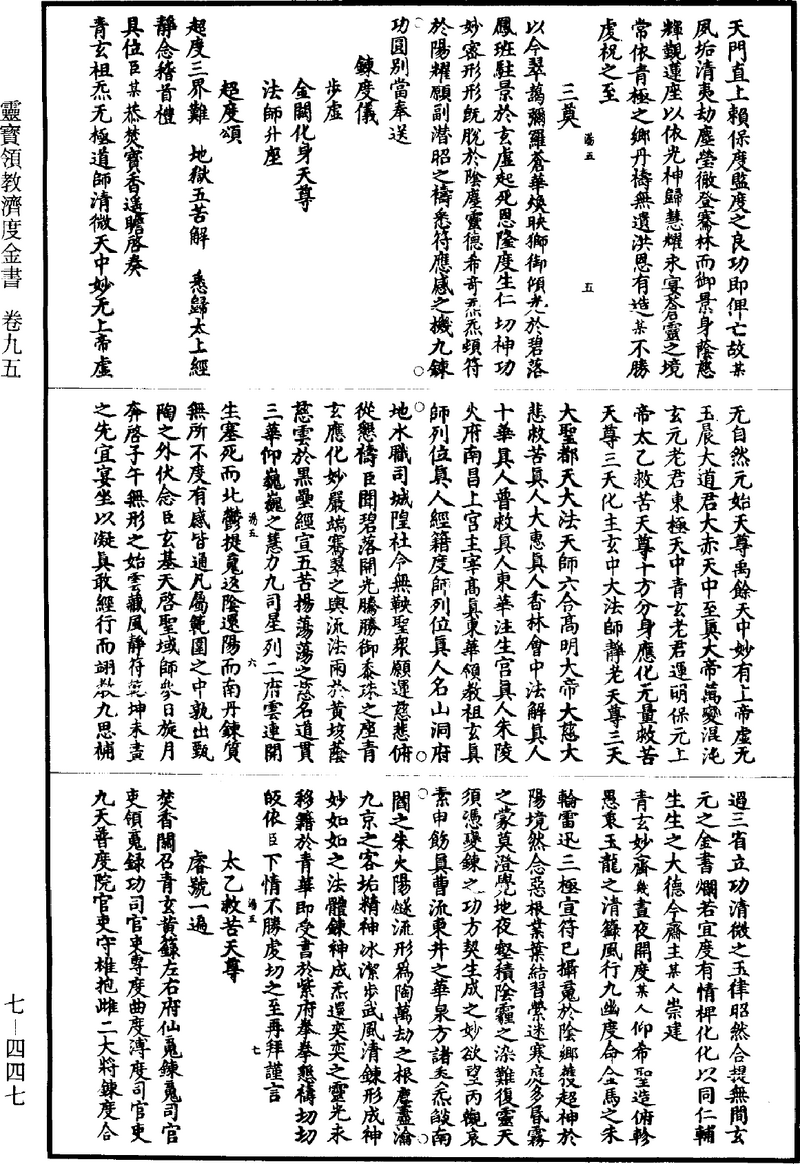 靈寶領教濟度金書 卷九五
七—四四七
天門直上賴保度監度之良功即俾亡故某
夙垢清夷劫塵瑩徹登騫林而御景身蔭慈
輝觀蓮座以依光神歸慧耀永宴蒼靈之境
常依青極之鄉丹禱無遺洪恩有造某不勝
虔祝之至
三奠
湯五 五
以今翠藹彌羅蒼華煥映獅御傾光於碧落
鳳班駐景於玄虛起死恩隆度生仁切神功
妙密形形旣脫於陰塵靈德希奇炁炁頓符
於陽耀願副潛昭之禱悉符應感之機九鍊
功圓別當奉送
鍊度儀
步虛
金闕化身天尊
法師升座
超度頌
超度三界難 地獄五苦解 悉歸太上經
靜念稽首禮
具位臣某恭焚寶香遙瞻啓奏
青玄祖炁无極道師清微天中妙无上帝虛
无自然元始天尊禹餘天中妙有上帝虛无
玉晨大道君大赤天中至眞大帝萬變混沌
玄元老君東極天中青玄老君運明保元上
帝太乙救苦天尊十方分身應化无量救苦
天尊三天化主玄中大法師靜老天尊三天
大聖都天大法天師六合高明大帝大慈大
悲救苦眞人大惠眞人香林會中法解眞人
十華眞人普救眞人東華注生官眞人朱陵
火府南昌上宮主宰高眞東華領教祖玄眞
師列位眞人經籍度師列位眞人名山洞府
地水職司城隍社令無鞅聖衆願運慈悲俯
從懇禱臣聞碧落開光騰勝御黍珠之座青
玄應化妙嚴端騫翠之輿流法雨於黃垓蔭
慈雲於黑壘經宣五苦揚蕩蕩之慈名道貫
三華仰巍巍之慧力九司星列二府雲連開
湯五 六
生塞死而北鬱提魂返陰還陽而南丹鍊質
無所不度有感皆通凡屬範圍之中孰出甄
陶之外伏念臣玄基天啓聖域師參日旋月
奔啓子午無形之始雲藏風靜符乾坤未畫
之先宜宴坐以凝眞敢經行而翊教九思補
過三省立功清微之玉律昭然合提無間玄
元之金書爛若宜度有情稗化化以同仁輔
生生之大德今齋主某人崇建
青玄妙齋幾晝夜開度某人仰希聖造俯軫
愚衷玉龍之清籙風行九幽度命金馬之朱
輪雷迅三極宣符已攝魂於陰鄉獲超神於
陽境然念惡根業葉結習縈迷寒庭多昏霧
之蒙莫澄覺地夜壑積陰霾之染難復靈天
須憑變鍊之功方契生成之妙欲望丙機哀
素申飭員曹流東井之華泉方諸炁炁啟南
閶之朱火陽燧流形爲陶萬劫之根塵盡瀹
九京之客垢精神冰潔步武風清鍊形成神
妙如如之法體鍊神成炁還奕奕之靈光未
移籍於青華即受書於紫府拳拳懇禱切切
皈依臣下情不勝虔切之至再拜謹言
湯五 七
太乙救苦天尊
睿號一遍
焚香關召青玄黃籙左右府仙魂鍊魂司官
吏領魂録功司官吏專度曲度溥度司官吏
九天普度院官吏守雄抱雌二大將鍊度合